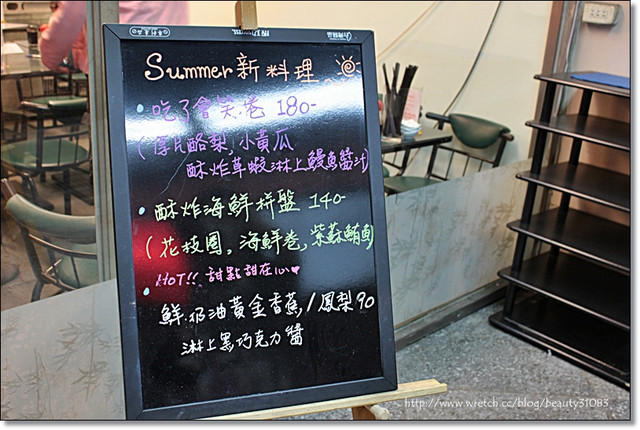 Summer新料理
• 吃了會笑卷 180-
(厚片酪梨,小黃瓜
酥炸草蝦淋上鰻魚醬汁)
• 酥炸海鮮拼盤 140-
(花枝圈,海鮮卷,紫蘇鮪魚)
HOT!! 甜點甜在心♥
• 鮮奶油黃金香蕉/鳳梨90
淋上黑巧克力醬
http://www.wretch.cc/blog/beauty31083